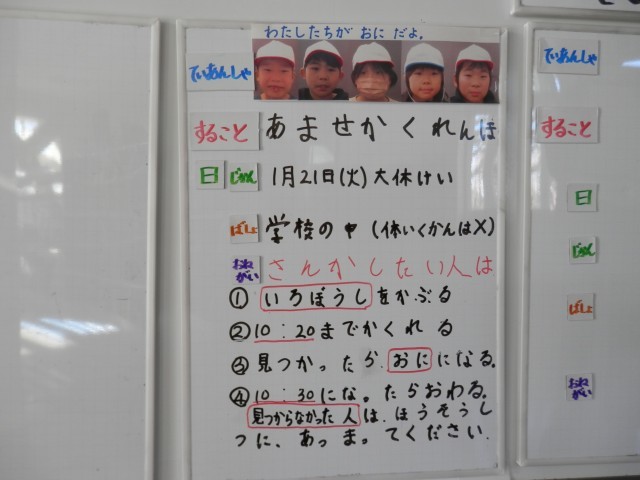 わたしたちが おに だよ。
ていあんしゃ
すること あませかくれんほ
日 じかん 1月21日(火)大休けい
ばしょ 学校の中(体いくかんはX)
おねがい さんかしたい人は
① いろぼうしをかぶる
②10:20までかくれる
③見つかったら、おにになる。
④10:30にな。たらおわる。
見つからなかった人は、ほうそうし
つに、あっま。てください.
ていあんしゃ
すること
日
じかん
ばしょ
おねがい